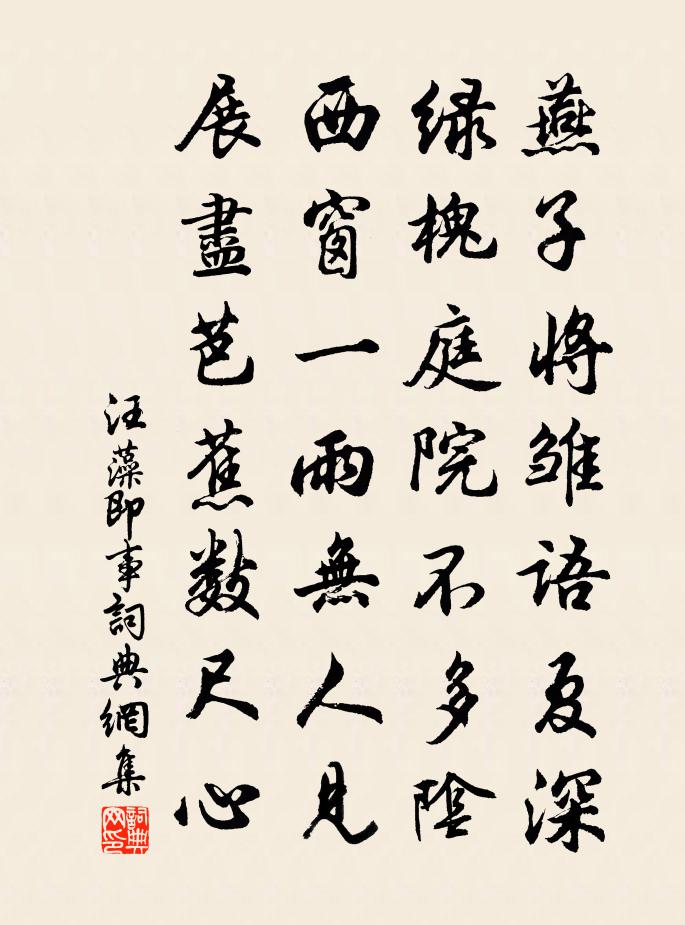 燕子將雛語夏深
緑槐庭院不多陰
西窗一雨無人見
展盡芭蕉數尺心
汪藻即事詞典網集
詞典網印